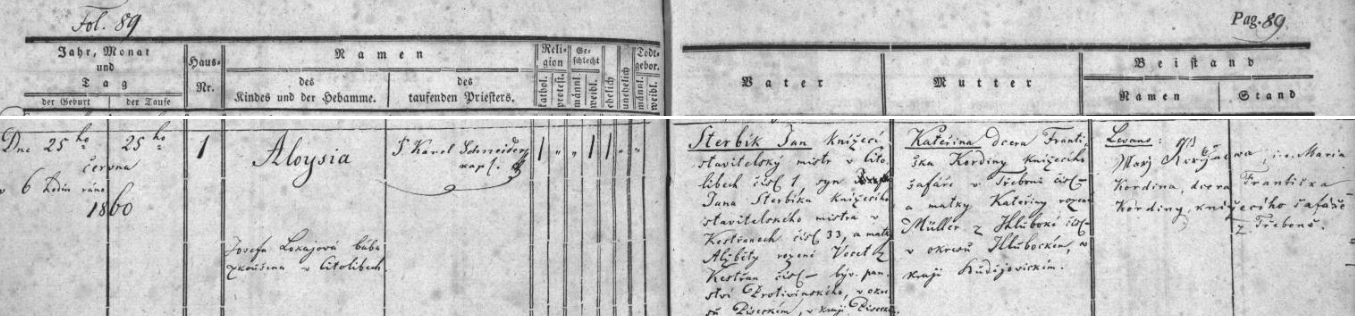 Fol. 89
Pag. 89
Jahr, Monat
und
Tag
der Geburt
der Taufe
Haus-
Nr.
Namen
des
Kindes und der Hebamme.
des
taufenden Priesters.
Reli-
gion
kathol.
protest.
Ge-
schlecht
männl.
weibl.
ehelich
unehelich
Todt-
gebor.
männl.
weibl.
Vater
Mutter
Beistand
Namen
Stand
Dne 25ho
června
v 6 hodin ráno
1860
25ho
1
Aloysia
P. Karel Schneider
kapl.
1 „ „ 1 1 „ „
Josefa Lokajová bába
zkoušená v Citolibech.
Sterbik Jan knížecí
stavitelský mistr v Cito-
libech čísl 1 syn
Jana Sterbika knížecího
stavitelského mistra v
Kestřanech čísl 33, a matky
Alžběty rozené Vocet z
Kestřan čísl – býv. pan-
ství Protivínského, v okre-
su Píseckém, v kraji
Kateřina dcera Franti-
ška Kordiny knížecího
šafáře v Třeboni čísl –
a matky Kateřiny rozené
Müller z Hluboké čísl –
v okresu Hlubockém, v
kraji Budějovickém.
Levana:
Marie
Kordina, dcera Františka
Kordiny, knížecího šafáře
z Třeboně.